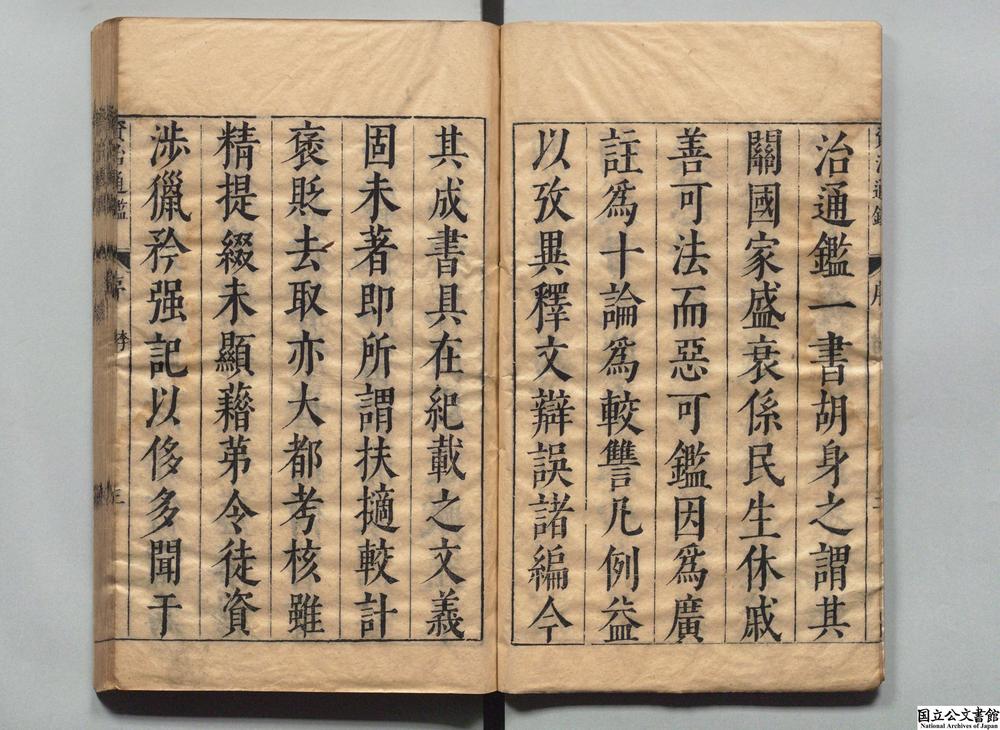 治通鑑一書胡身之謂其
關國家盛衰係民生休戚
善可法而惡可鑑因爲廣
註爲十論爲較讐凡例益
以攷異釋文辯誤諸編今
其成書具在紀載之文義
固未著即所謂扶擿較計
褒貶去取亦大都考核雖
精提綴未顯藉第令徒資
涉獵矜强記以侈多聞于
資治通鑑
序
国立公文書館
National Archives of Japan